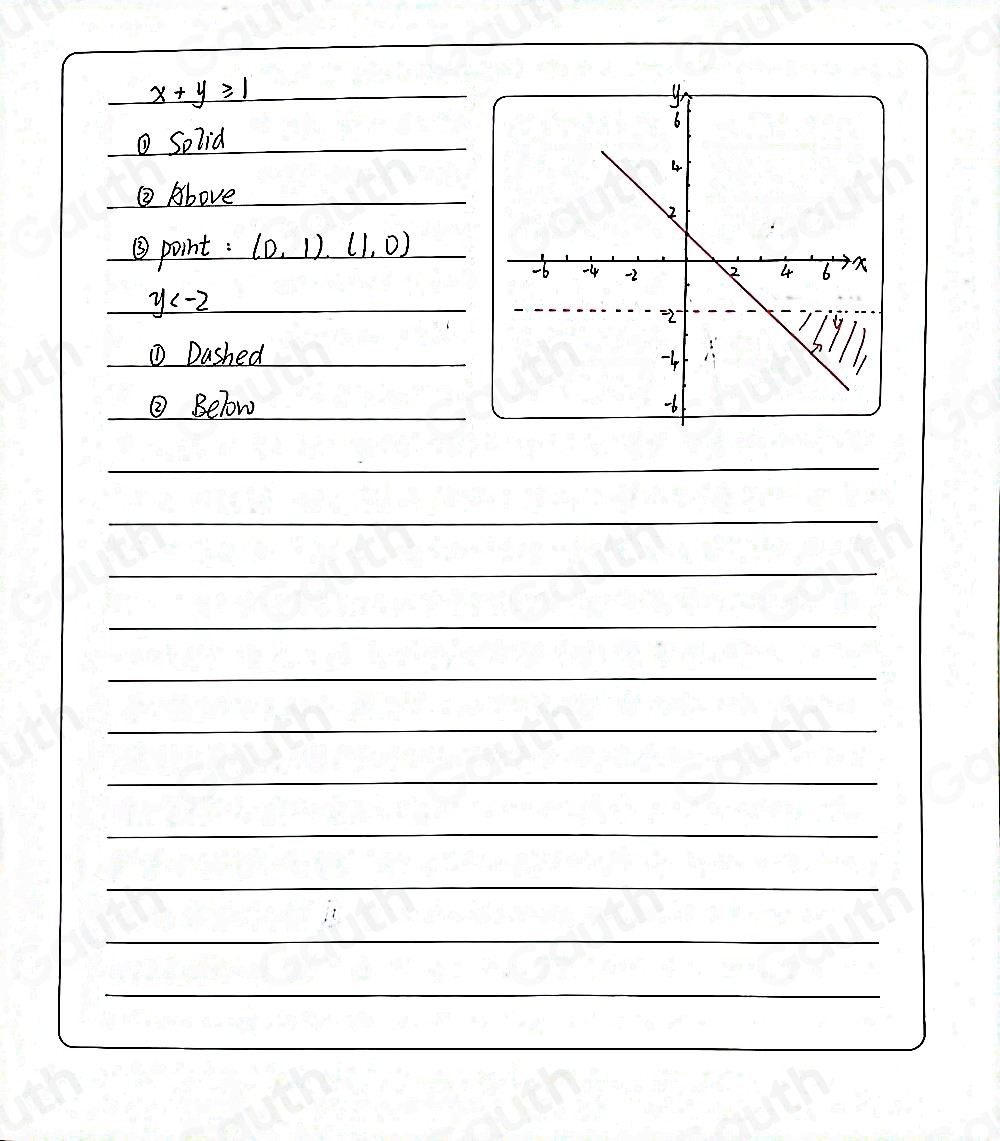 x + y ≥ 1
① Solid
② Above
③ point : (0, 1). (1, 0)
y < -2
① Dashed
② Below
y
6
4
2
-6 -4 -2 2 4 6 x
-2
-4
-6
Gauth